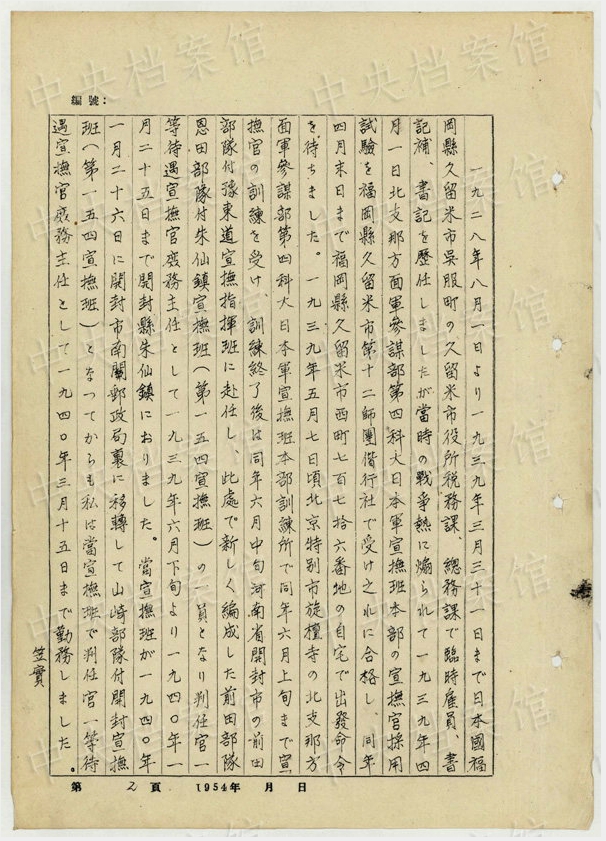 編號：
一九二八年八月一日より一九三九年三月三十一日まで日本國福
岡縣久留米市吳服町の久留米市役所税務課、總務課で臨時雇員、書
記補、書記を歴任しましたが當時の戰爭熱に煽られて一九三九年四
月一日北支那方面軍參謀部第四科大日本軍宣撫班本部の宣撫官採用
試驗を福岡縣久留米市第十二師團偕行社で受け之れに合格し、同年
四月末日まで福岡縣久留米市西町七百七拾六番地の自宅で出發命令
を待ちました。一九三九年五月七日頃北京特別市旋檀寺の北支那方
面軍參謀部第四科大日本軍宣撫班本部訓練所で同年六月上旬まで宣
撫官の訓練を受け、訓練終了後は同年六月中旬河南省開封市の前田
部隊付豫東道宣撫指揮班に赴任し、此處で新しく編成した前田部隊
恩田部隊付朱仙鎮宣撫班（第一五四宣撫班）の一員となり判任官一
等待遇宣撫官庶務主任として一九三九年六月下旬より一九四〇年一
月二十五日まで開封縣朱仙鎮におりました。當宣撫班が一九四〇年
一月二十六日に開封市南關郵政局裏に移轉して山崎部隊付開封宣撫
班（第一五四宣撫班）となつてからも私は當宣撫班で判任官一等待
遇宣撫官庶務主任として一九四〇年三月十五日まで勤務しました。
笠實
第 2 頁 1954年 月 日
中央档案馆